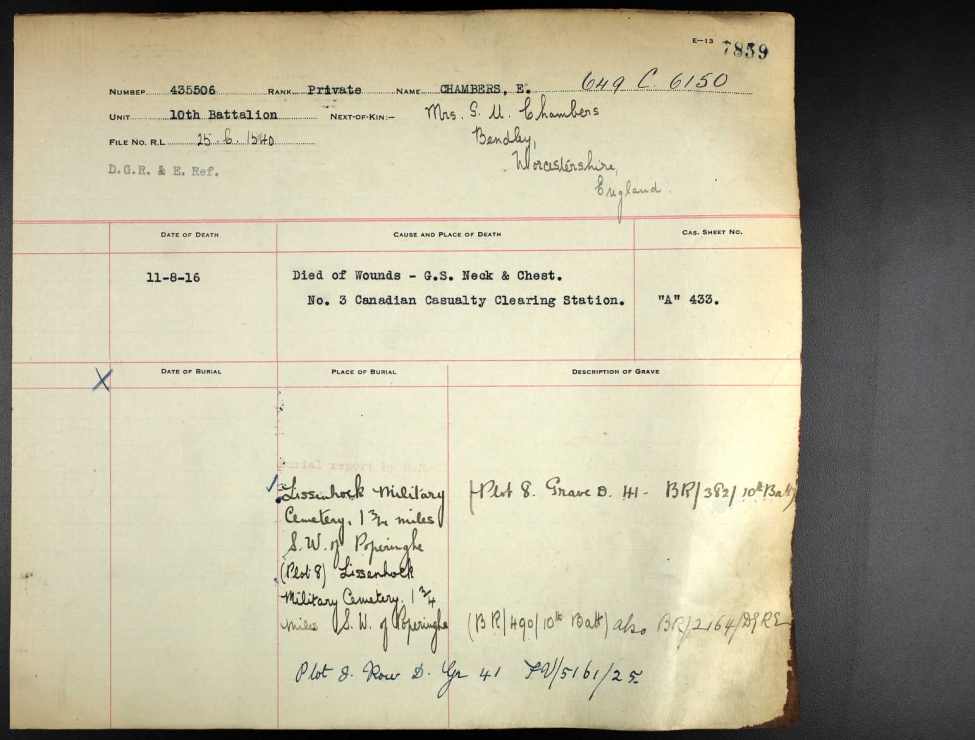 E—13 7859
NUMBER 435506 RANK Private NAME CHAMBERS, E. 649 C. 6150
UNIT 10th Battalion NEXT-OF-KIN:— Mrs. S. U. Chambers
FILE NO. R.L. 25-6-1540 Bendley,
Worcestershire,
D.G.R. & E. Ref.
England.
DATE OF DEATH CAUSE AND PLACE OF DEATH CAS. SHEET NO.
11-8-16 Died of Wounds - G.S. Neck & Chest.
No. 3 Canadian Casualty Clearing Station. "A" 433.
DATE OF BURIAL PLACE OF BURIAL DESCRIPTION OF GRAVE
burial report by
Lissenhoek Military (Plot 8. Grave D. 41- BR/382/10th Batt)
Cemetery. 1 3/4 miles
S.W. of Poperinghe
(Plot 8) Lissenhoek
Military Cemetery. 1 3/4
miles S.W. of Poperinghe (BR/490/10th Batt) also BR/2164/DGRE
Plot 8. Row D. Gr 41 /5161/25